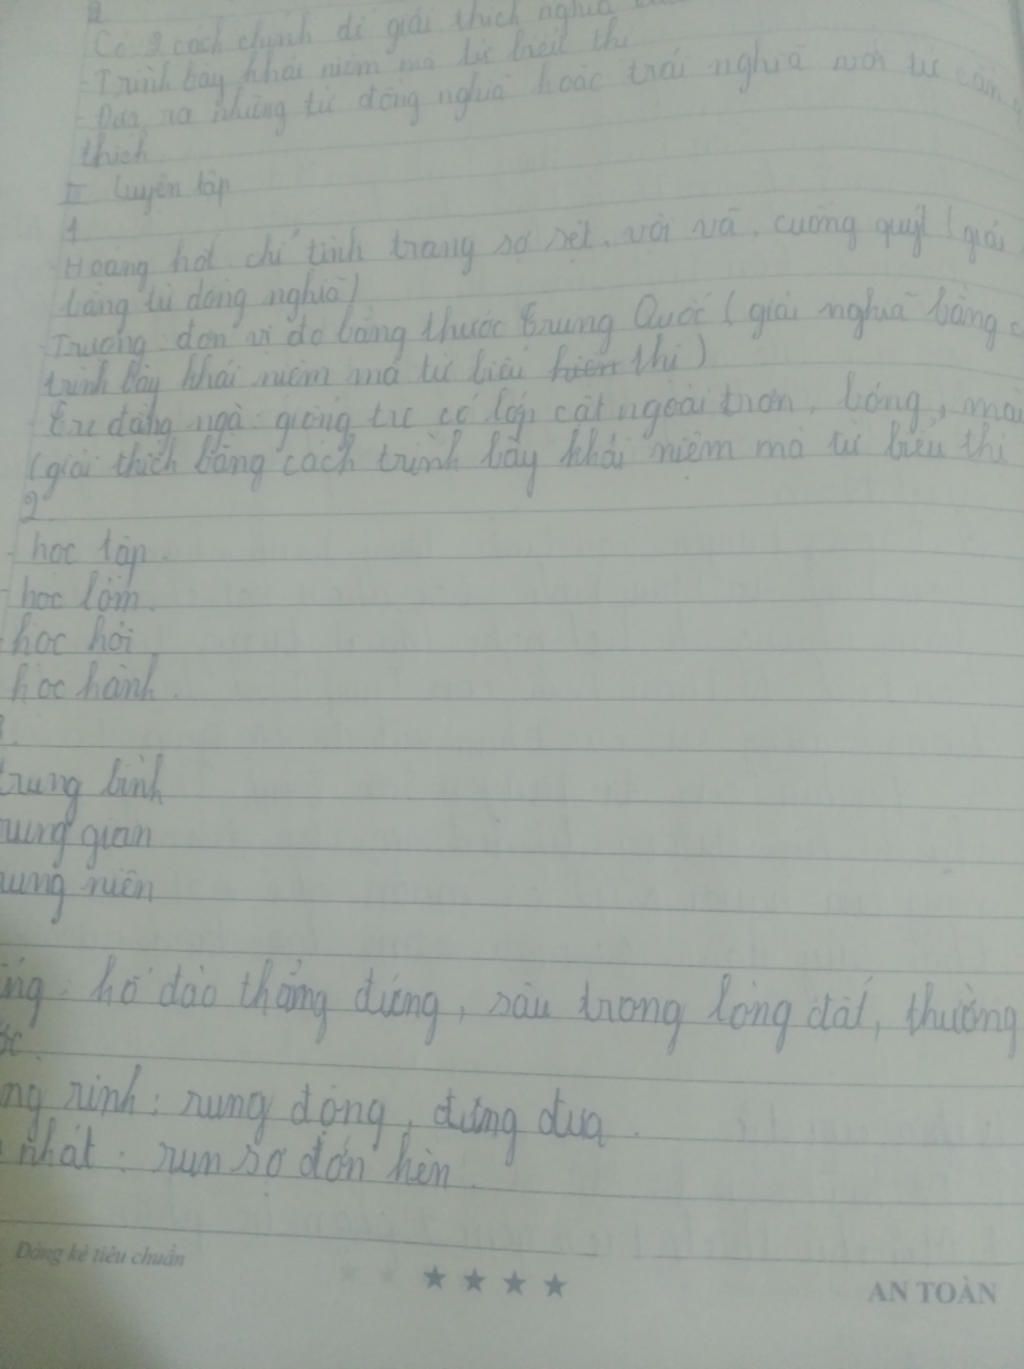 2
Có 2 cách chính để giải thích nghĩa
- Trình bày khái niệm mà từ biểu thị
- Đưa ra những từ đồng nghĩa hoặc trái nghĩa với từ cần
thích
II Luyện tập
1
Hoảng hốt chỉ tình trạng sợ sệt, vội vã, cuống quýt (giải
bằng từ đồng nghĩa)
- Trượng đơn vị đo bằng thước Trung Quốc (giải nghĩa bằng c
trình bày khái niệm mà từ biểu thị)
- Tre đằng ngà: giống tre có lớp cật ngoài trơn, bóng, mà
(giải thích bằng cách trình bày khái niệm mà từ biểu thị
2
- học tập.
- học lỏm.
- học hỏi
học hành.
3.
trung bình
rung gian
rung niên
ếng: hố đào thẳng đứng, sâu trong lòng đất, thường
ớc.
ng rinh: rung động, đung đưa.
nhát: run sợ đớn hèn.
Dòng kẻ tiêu chuẩn
★ ★ ★ ★
AN TOÀN